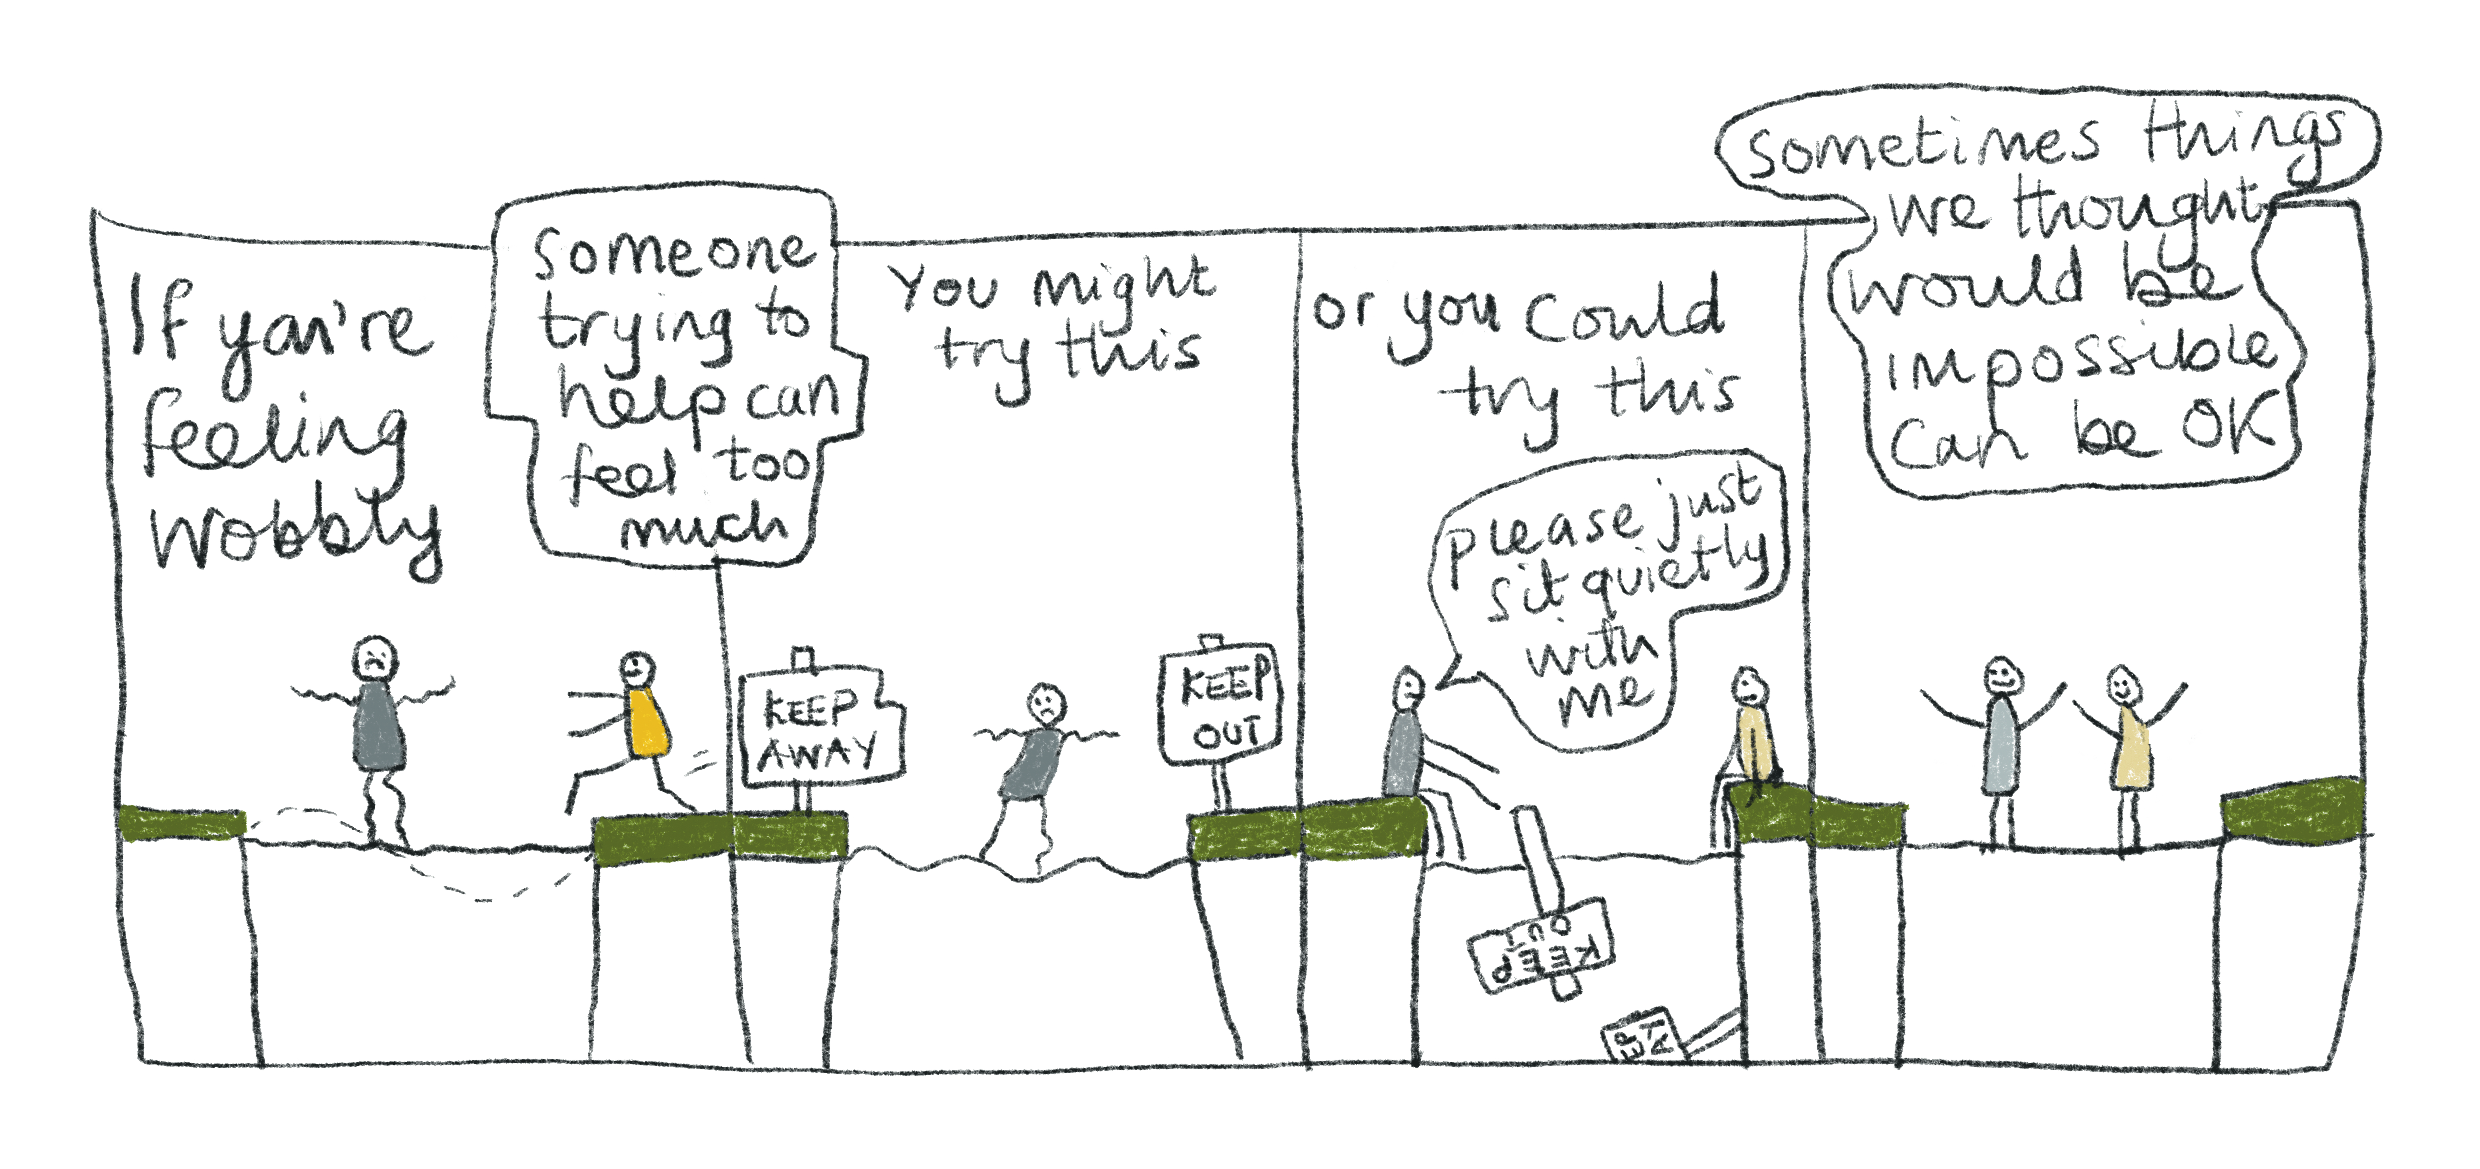 If you're
feeling
wobbly
someone
trying to
help can
feel too
much
You might
try this
KEEP
AWAY
KEEP
OUT
or you could
try this
please just
sit quietly
with
me
KEEP
OUT
EP
AY
sometimes things
we thought
would be
impossible
can be OK